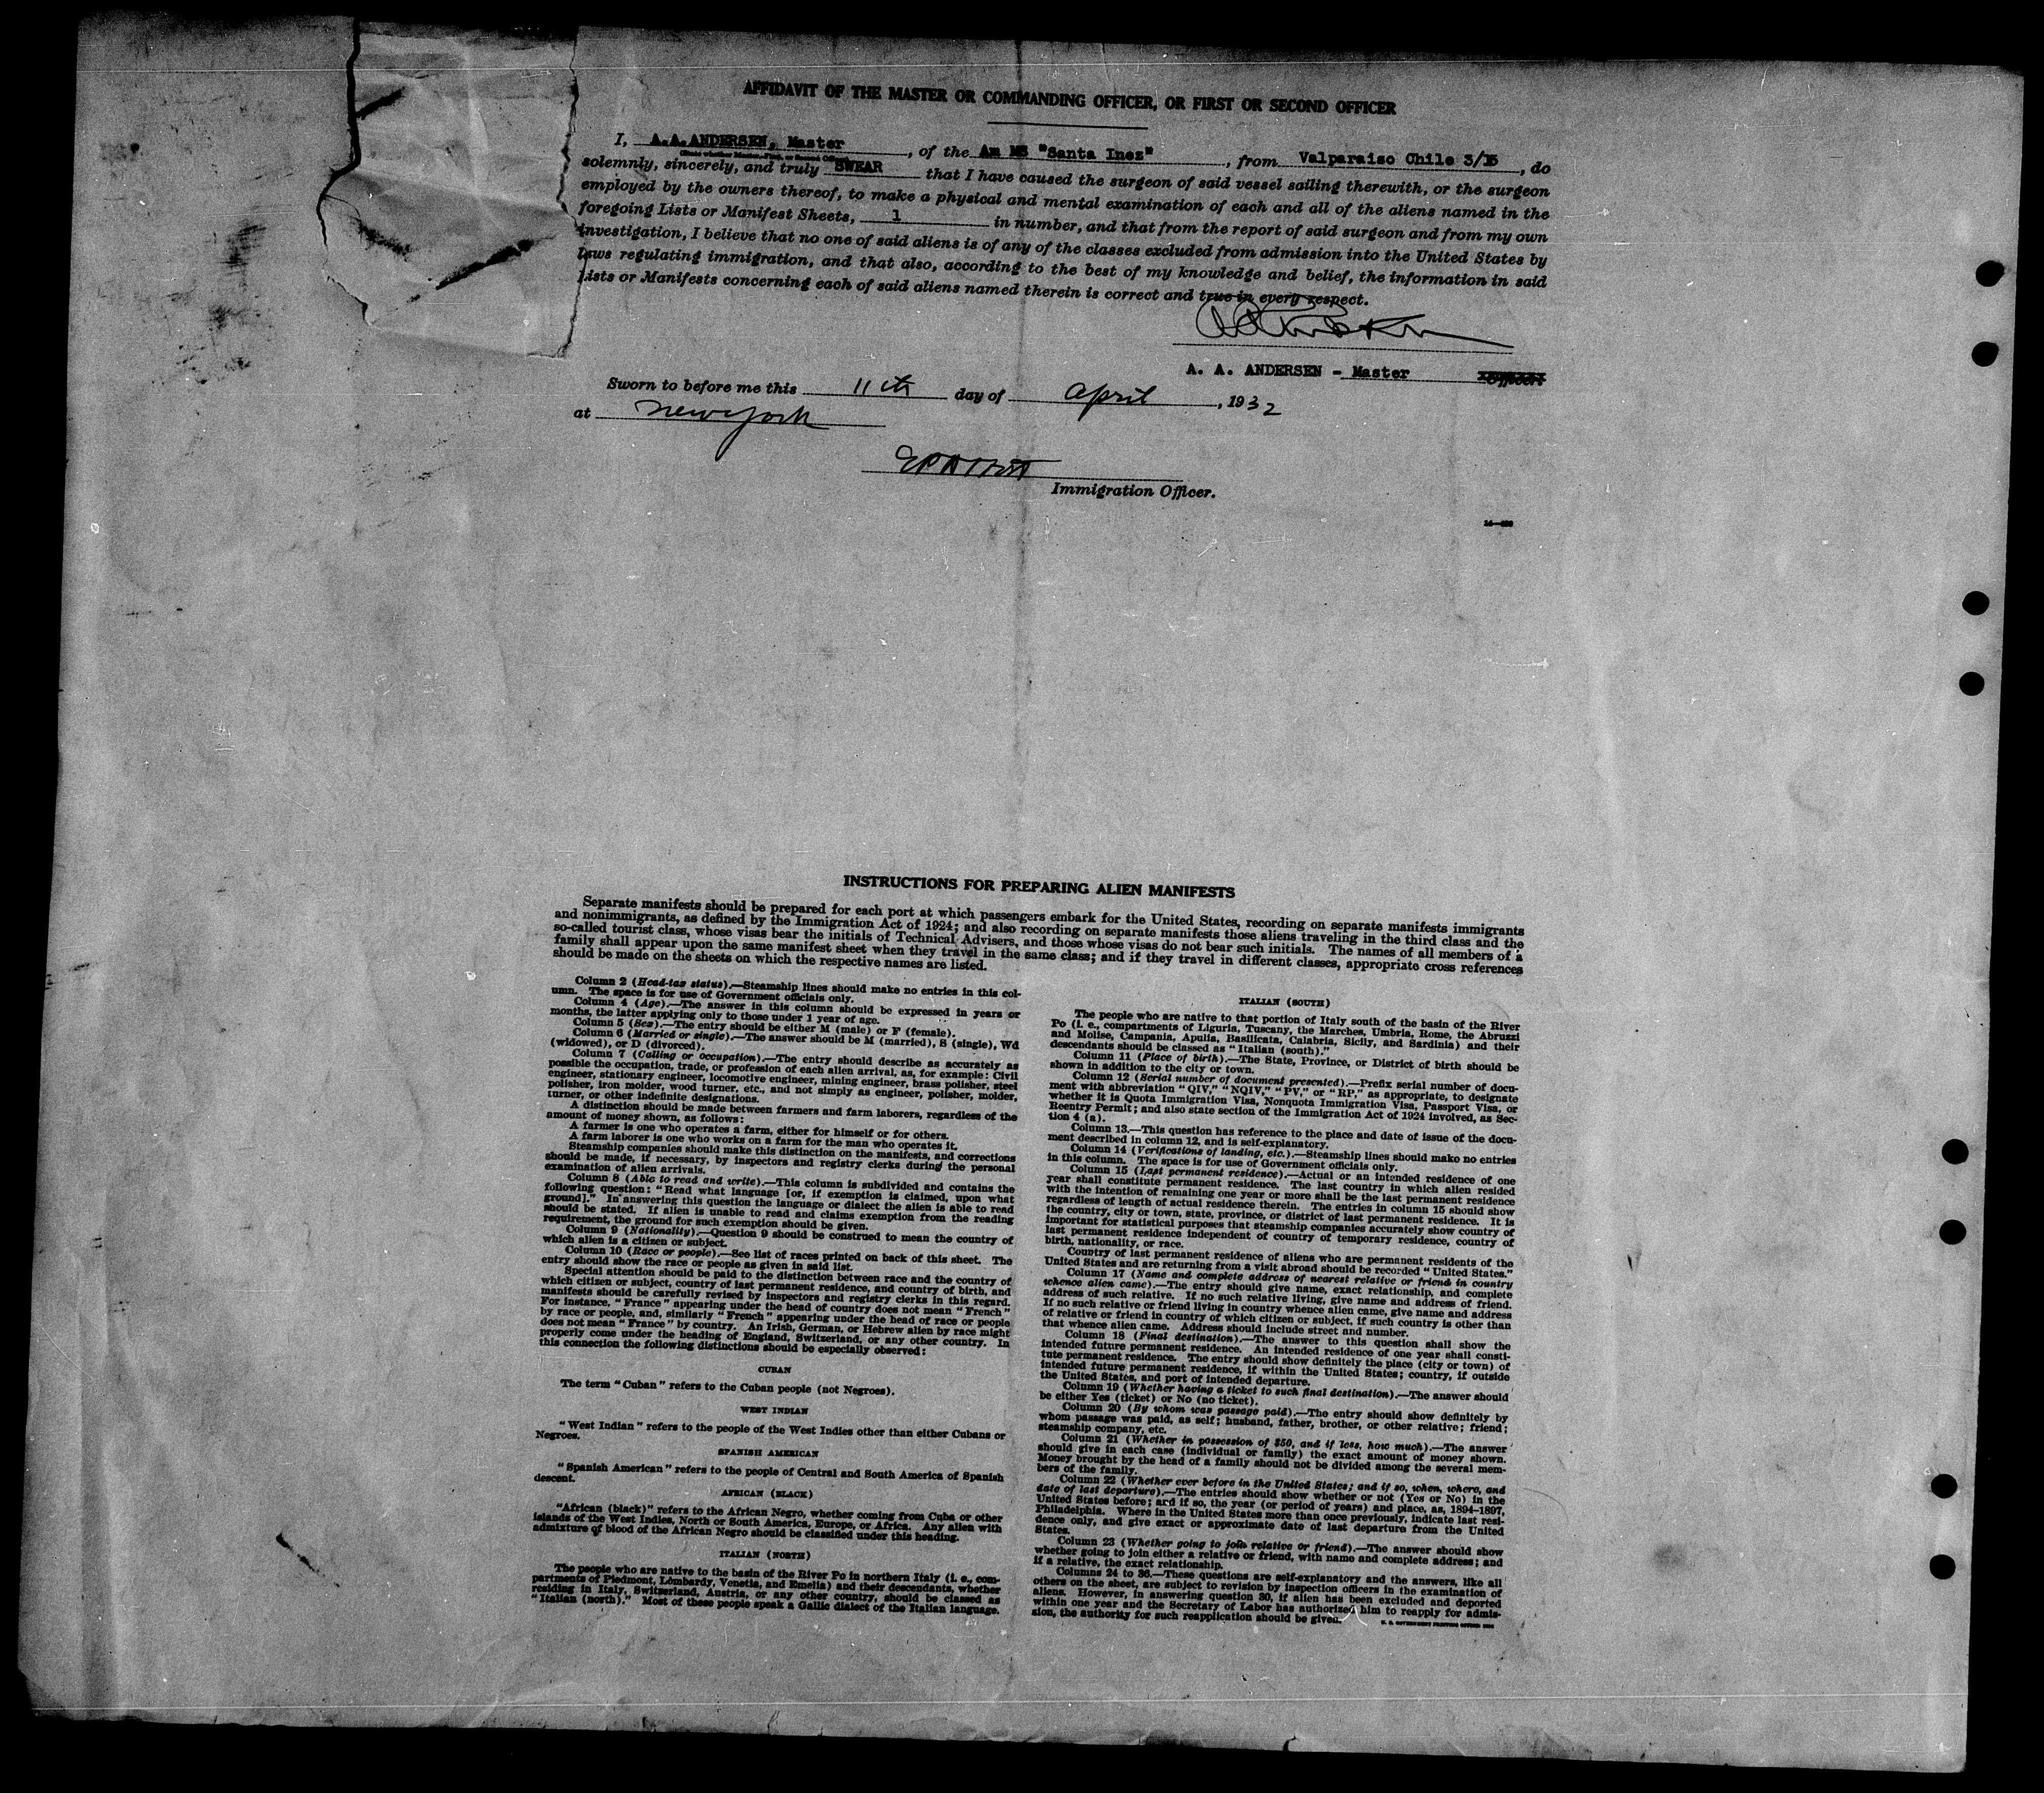 AFFIDAVIT OF THE MASTER OR COMMANDING OFFICER, OR FIRST OR SECOND OFFICER
I, A.A.ANDERSEN, Master, of the Am MS "Santa Inez", from Valparaiso Chile 3/15, do
(State whether Master, First, or Second Officer)
solemnly, sincerely, and truly SWEAR that I have caused the surgeon of said vessel sailing therewith, or the surgeon
employed by the owners thereof, to make a physical and mental examination of each and all of the aliens named in the
foregoing Lists or Manifest Sheets, 1 in number, and that from the report of said surgeon and from my own
investigation, I believe that no one of said aliens is of any of the classes excluded from admission into the United States by
laws regulating immigration, and that also, according to the best of my knowledge and belief, the information in said
Lists or Manifests concerning each of said aliens named therein is correct and true in every respect.
A. A. ANDERSEN - Master Officer.
Sworn to before me this 11th day of April, 1932
at New York
Immigration Officer.
INSTRUCTIONS FOR PREPARING ALIEN MANIFESTS
Separate manifests should be prepared for each port at which passengers embark for the United States, recording on separate manifests immigrants
and nonimmigrants, as defined by the Immigration Act of 1924; and also recording on separate manifests those aliens traveling in the third class and the
so-called tourist class, whose visas bear the initials of Technical Advisers, and those whose visas do not bear such initials. The names of all members of a
family shall appear upon the same manifest sheet when they travel in the same class; and if they travel in different classes, appropriate cross references
should be made on the sheets on which the respective names are listed.
Column 2 (Head-tax status).—Steamship lines should make no entries in this col-
umn. The space is for use of Government officials only.
Column 4 (Age).—The answer in this column should be expressed in years or
months, the latter applying only to those under 1 year of age.
Column 5 (Sex).—The entry should be either M (male) or F (female).
Column 6 (Married or single).—The answer should be M (married), S (single), Wd
(widowed), or D (divorced).
Column 7 (Calling or occupation).—The entry should describe as accurately as
possible the occupation, trade, or profession of each alien arrival, as, for example: Civil
engineer, stationary engineer, locomotive engineer, mining engineer, brass polisher, steel
polisher, iron molder, wood turner, etc., and not simply as engineer, polisher, molder,
turner, or other indefinite designations.
A distinction should be made between farmers and farm laborers, regardless of the
amount of money shown, as follows:
A farmer is one who operates a farm, either for himself or for others.
A farm laborer is one who works on a farm for the man who operates it.
Steamship companies should make this distinction on the manifests, and corrections
should be made, if necessary, by inspectors and registry clerks during the personal
examination of alien arrivals.
Column 8 (Able to read and write).—This column is subdivided and contains the
following question: "Read what language [or, if exemption is claimed, upon what
ground]." In answering this question the language or dialect the alien is able to read
should be stated. If alien is unable to read and claims exemption from the reading
requirement, the ground for such exemption should be given.
Column 9 (Nationality).—Question 9 should be construed to mean the country of
which alien is a citizen or subject.
Column 10 (Race or people).—See list of races printed on back of this sheet. The
entry should show the race or people as given in said list.
Special attention should be paid to the distinction between race and the country of
which citizen or subject, country of last permanent residence, and country of birth, and
manifests should be carefully revised by inspectors and registry clerks in this regard.
For instance, "France" appearing under the head of country does not mean "French"
by race or people, and, similarly "French" appearing under the head of race or people
does not mean "France" by country. An Irish, German, or Hebrew alien by race might
properly come under the heading of England, Switzerland, or any other country. In
this connection the following distinctions should be especially observed:
CUBAN
The term "Cuban" refers to the Cuban people (not Negroes).
WEST INDIAN
"West Indian" refers to the people of the West Indies other than either Cubans or
Negroes.
SPANISH AMERICAN
"Spanish American" refers to the people of Central and South America of Spanish
descent.
AFRICAN (BLACK)
"African (black)" refers to the African Negro, whether coming from Cuba or other
islands of the West Indies, North or South America, Europe, or Africa. Any alien with
admixture of blood of the African Negro should be classified under this heading.
ITALIAN (NORTH)
The people who are native to the basin of the River Po in northern Italy (i. e., com-
partments of Piedmont, Lombardy, Venetia, and Emelia) and their descendants, whether
residing in Italy, Switzerland, Austria, or any other country, should be classed as
"Italian (north)." Most of these people speak a Gallic dialect of the Italian language.
ITALIAN (SOUTH)
The people who are native to that portion of Italy south of the basin of the River
Po (i. e., compartments of Liguria, Tuscany, the Marches, Umbria, Rome, the Abruzzi
and Molise, Campania, Apulia, Basilicata, Calabria, Sicily, and Sardinia) and their
descendants should be classed as "Italian (south)."
Column 11 (Place of birth).—The State, Province, or District of birth should be
shown in addition to the city or town.
Column 12 (Serial number of document presented).—Prefix serial number of docu-
ment with abbreviation "QIV," "NQIV," "PV," or "RP," as appropriate, to designate
whether it is Quota Immigration Visa, Nonquota Immigration Visa, Passport Visa, or
Reentry Permit; and also state section of the Immigration Act of 1924 involved, as Sec-
tion 4 (a).
Column 13.—This question has reference to the place and date of issue of the docu-
ment described in column 12, and is self-explanatory.
Column 14 (Verifications of landing, etc.).—Steamship lines should make no entries
in this column. The space is for use of Government officials only.
Column 15 (Last permanent residence).—Actual or an intended residence of one
year shall constitute permanent residence. The last country in which alien resided
with the intention of remaining one year or more shall be the last permanent residence
regardless of length of actual residence therein. The entries in column 15 should show
the country, city or town, state, province, or district of last permanent residence. It is
important for statistical purposes that steamship companies accurately show country of
last permanent residence independent of country of temporary residence, country of
birth, nationality, or race.
Country of last permanent residence of aliens who are permanent residents of the
United States and are returning from a visit abroad should be recorded "United States."
Column 17 (Name and complete address of nearest relative or friend in country
whence alien came).—The entry should give name, exact relationship, and complete
address of such relative. If no such relative living, give name and address of friend.
If no such relative or friend living in country whence alien came, give name and address
of relative or friend in country of which citizen or subject, if such country is other than
that whence alien came. Address should include street and number.
Column 18 (Final destination).—The answer to this question shall show the
intended future permanent residence. An intended residence of one year shall consti-
tute permanent residence. The entry should show definitely the place (city or town) of
intended future permanent residence, if within the United States; country, if outside
the United States, and port of intended departure.
Column 19 (Whether having a ticket to such final destination).—The answer should
be either Yes (ticket) or No (no ticket).
Column 20 (By whom was passage paid).—The entry should show definitely by
whom passage was paid, as self; husband, father, brother, or other relative; friend;
steamship company, etc.
Column 21 (Whether in possession of $50, and if less, how much).—The answer
should give in each case (individual or family) the exact amount of money shown.
Money brought by the head of a family should not be divided among the several mem-
bers of the family.
Column 22 (Whether ever before in the United States; and if so, when, where, and
date of last departure).—The entries should show whether or not (Yes or No) in the
United States before; and if so, the year (or period of years) and place, as, 1894-1897,
Philadelphia. Where in the United States more than once previously, indicate last resi-
dence only, and give exact or approximate date of last departure from the United
States.
Column 23 (Whether going to join relative or friend).—The answer should show
whether going to join either a relative or friend, with name and complete address; and
if a relative, the exact relationship.
Columns 24 to 36.—These questions are self-explanatory and the answers, like all
others on the sheet, are subject to revision by inspection officers in the examination of
aliens. However, in answering question 30, if alien has been excluded and deported
within one year and the Secretary of Labor has authorized him to reapply for admis-
sion, the authority for such reapplication should be given.
U. S. GOVERNMENT PRINTING OFFICE